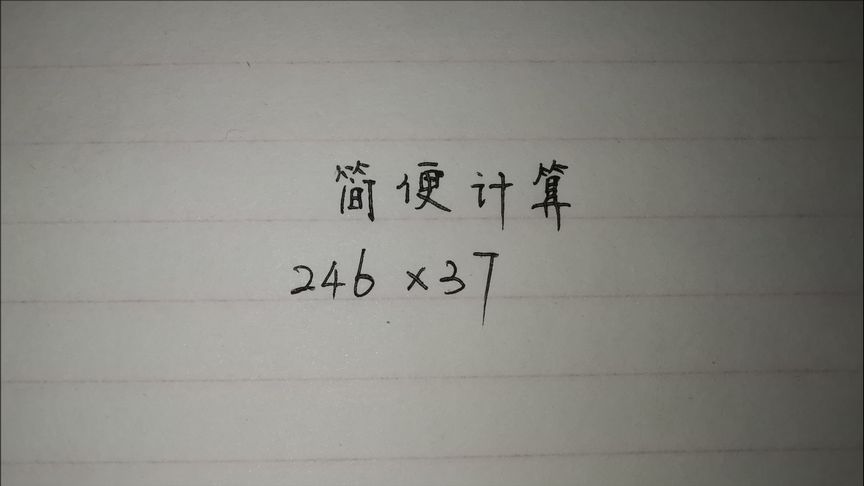 简便计算
246×37